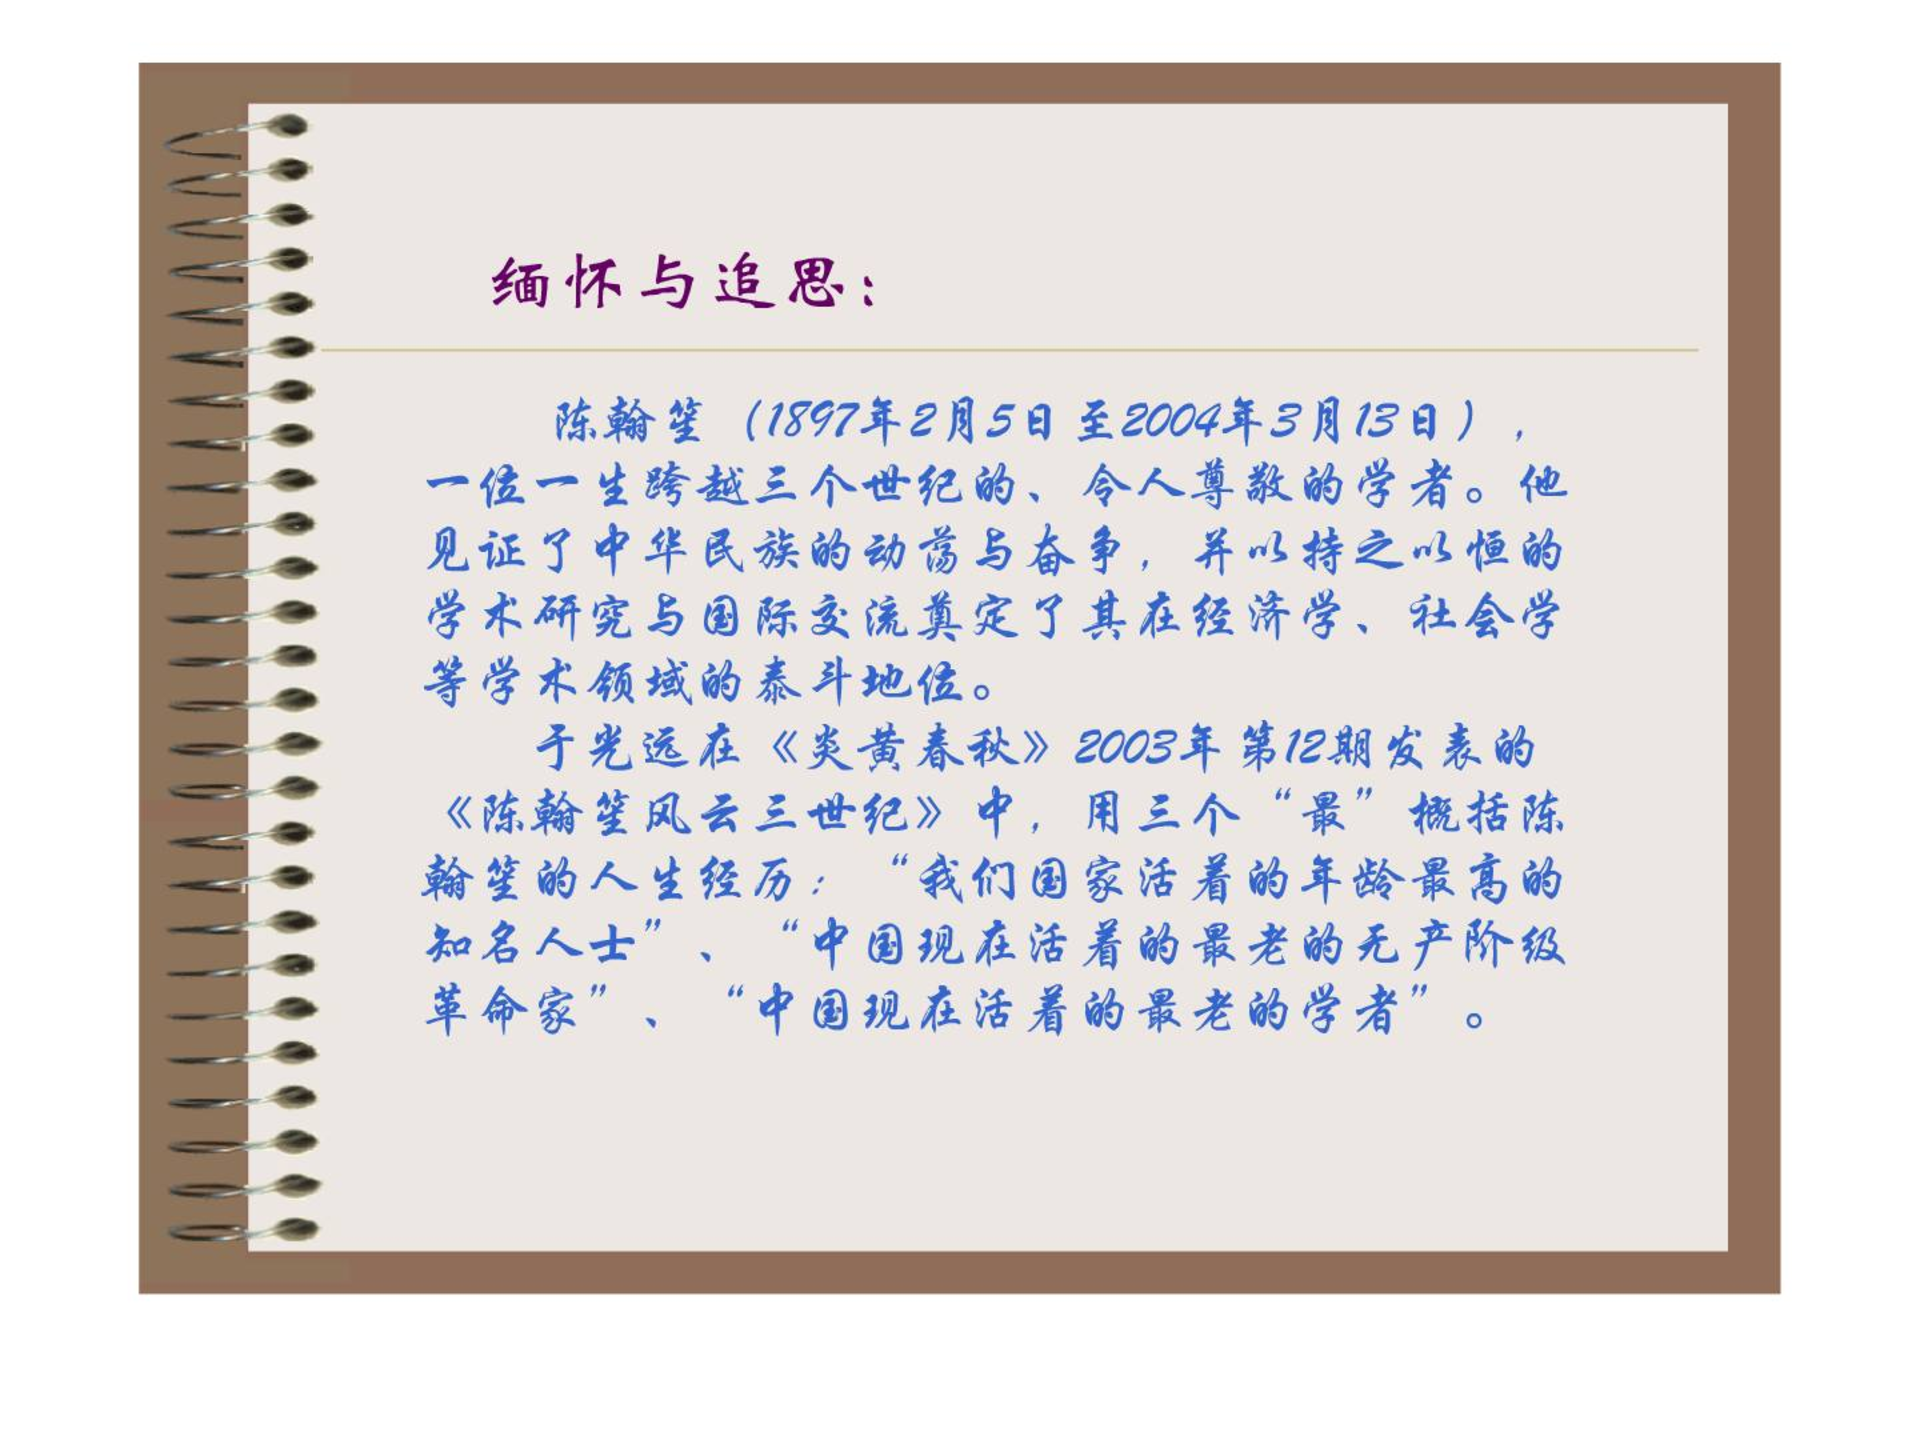 缅怀与追思：
陈翰笙（1897年2月5日至2004年3月13日），
一位一生跨越三个世纪的、令人尊敬的学者。他
见证了中华民族的动荡与奋争，并以持之以恒的
学术研究与国际交流奠定了其在经济学、社会学
等学术领域的泰斗地位。
于光远在《炎黄春秋》2003年第12期发表的
《陈翰笙风云三世纪》中，用三个“最”概括陈
翰笙的人生经历：“我们国家活着的年龄最高的
知名人士”、“中国现在活着的最老的无产阶级
革命家”、“中国现在活着的最老的学者”。